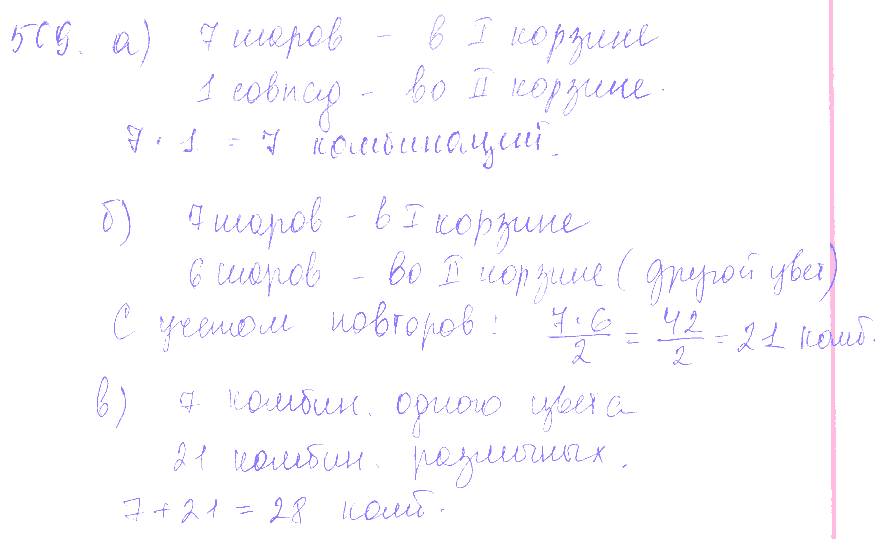 519. а) 7 шаров - в I корзине
1 совпад - во II корзине.
7 · 1 = 7 комбинаций.
б) 7 шаров - в I корзине
6 шаров - во II корзине (другой цвет)
С учетом повторов: 7·6/2 = 42/2 = 21 комб.
в) 7 комбин. одного цвета
21 комбин. различных.
7 + 21 = 28 комб.